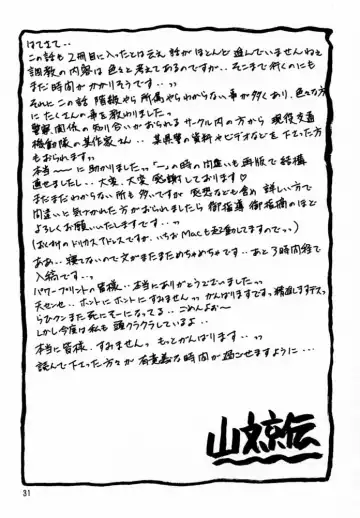 はてさて‥
この話も2冊目に入ったとは云え 話がほとんど進んでいませんねぇ
調教の内容は色々と考えてあるのですが‥そこまで行くのにも
まだ時間がかかりそうです‥ッ
それに この話 階級やら 所属やらわからない事が多くあり、色々な方
にたくさんの事を教わりましたっ
警察関係の知り合いがおられるサークル内の方から 現役交通
機動隊の某作家さん‥某県警の資料やビデオなどを下さった方
もおられます。
本当〜〜に助かりましたァ 「一」の時の間違いも再版で結構
直せましたし‥大変、大変 感謝しております♡
まだまだわからない所も多いですが 感想なども含め 詳しい方で
間違いと気づかれた方がおられましたら御指導 御指摘のほど
よろしくお願いいたしますです‥ッ
ああ‥寝てないので文がまたまためちゃめちゃです‥あと3時間程で
入稿です‥ッ
パワープリントの皆様‥本当にありがとうございましたッッ
天センセ‥ホントにホントにすみませんッ がんばりますですッ 精進しますデスッ
らひクンまた死にそーになってる‥ごめんよぉ〜
しかし今度は私も 頭クラクラしているよ‥
本当に皆様、すみませんっ もっとがんばります‥ッッ
読んで下さった方々が 有意義な時間が過ごせますように…
山文京伝
31